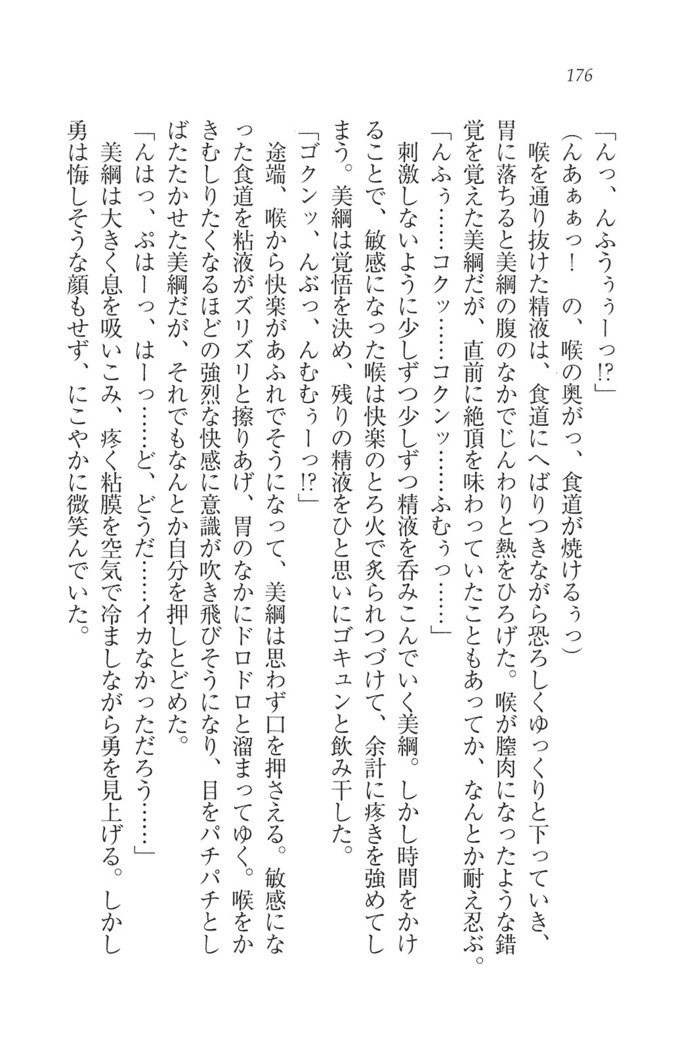 176
「んっ、んふうぅぅーっ!?」
(んあぁぁっ！　の、喉の奥がっ、食道が焼けるぅっ)
喉を通り抜けた精液は、食道にへばりつきながら恐ろしくゆっくりと下っていき、
胃に落ちると美綱の腹のなかでじんわりと熱をひろげた。喉が膣肉になったような錯
覚を覚えた美綱だが、直前に絶頂を味わっていたこともあってか、なんとか耐え忍ぶ。
「んふぅ……コクッ……コクンッ……ふむぅっ……」
刺激しないように少しずつ少しずつ精液を呑みこんでいく美綱。しかし時間をかけ
ることで、敏感になった喉は快楽のとろ火で炙られつづけて、余計に疼きを強めてし
まう。美綱は覚悟を決め、残りの精液をひと思いにゴキュンと飲み干した。
「ゴクンッ、んぶっ、んむむぅーっ!?」
途端、喉から快楽があふれでそうになって、美綱は思わず口を押さえる。敏感にな
った食道を粘液がズリズリと擦りあげ、胃のなかにドロドロと溜まってゆく。喉をか
きむしりたくなるほどの強烈な快感に意識が吹き飛びそうになり、目をパチパチとし
ばたたかせた美綱だが、それでもなんとか自分を押しとどめた。
「んはっ、ぷはーっ、はーっ……ど、どうだ……イカなかっただろう……」
美綱は大きく息を吸いこみ、疼く粘膜を空気で冷ましながら勇を見上げる。しかし
勇は悔しそうな顔もせず、にこやかに微笑んでいた。